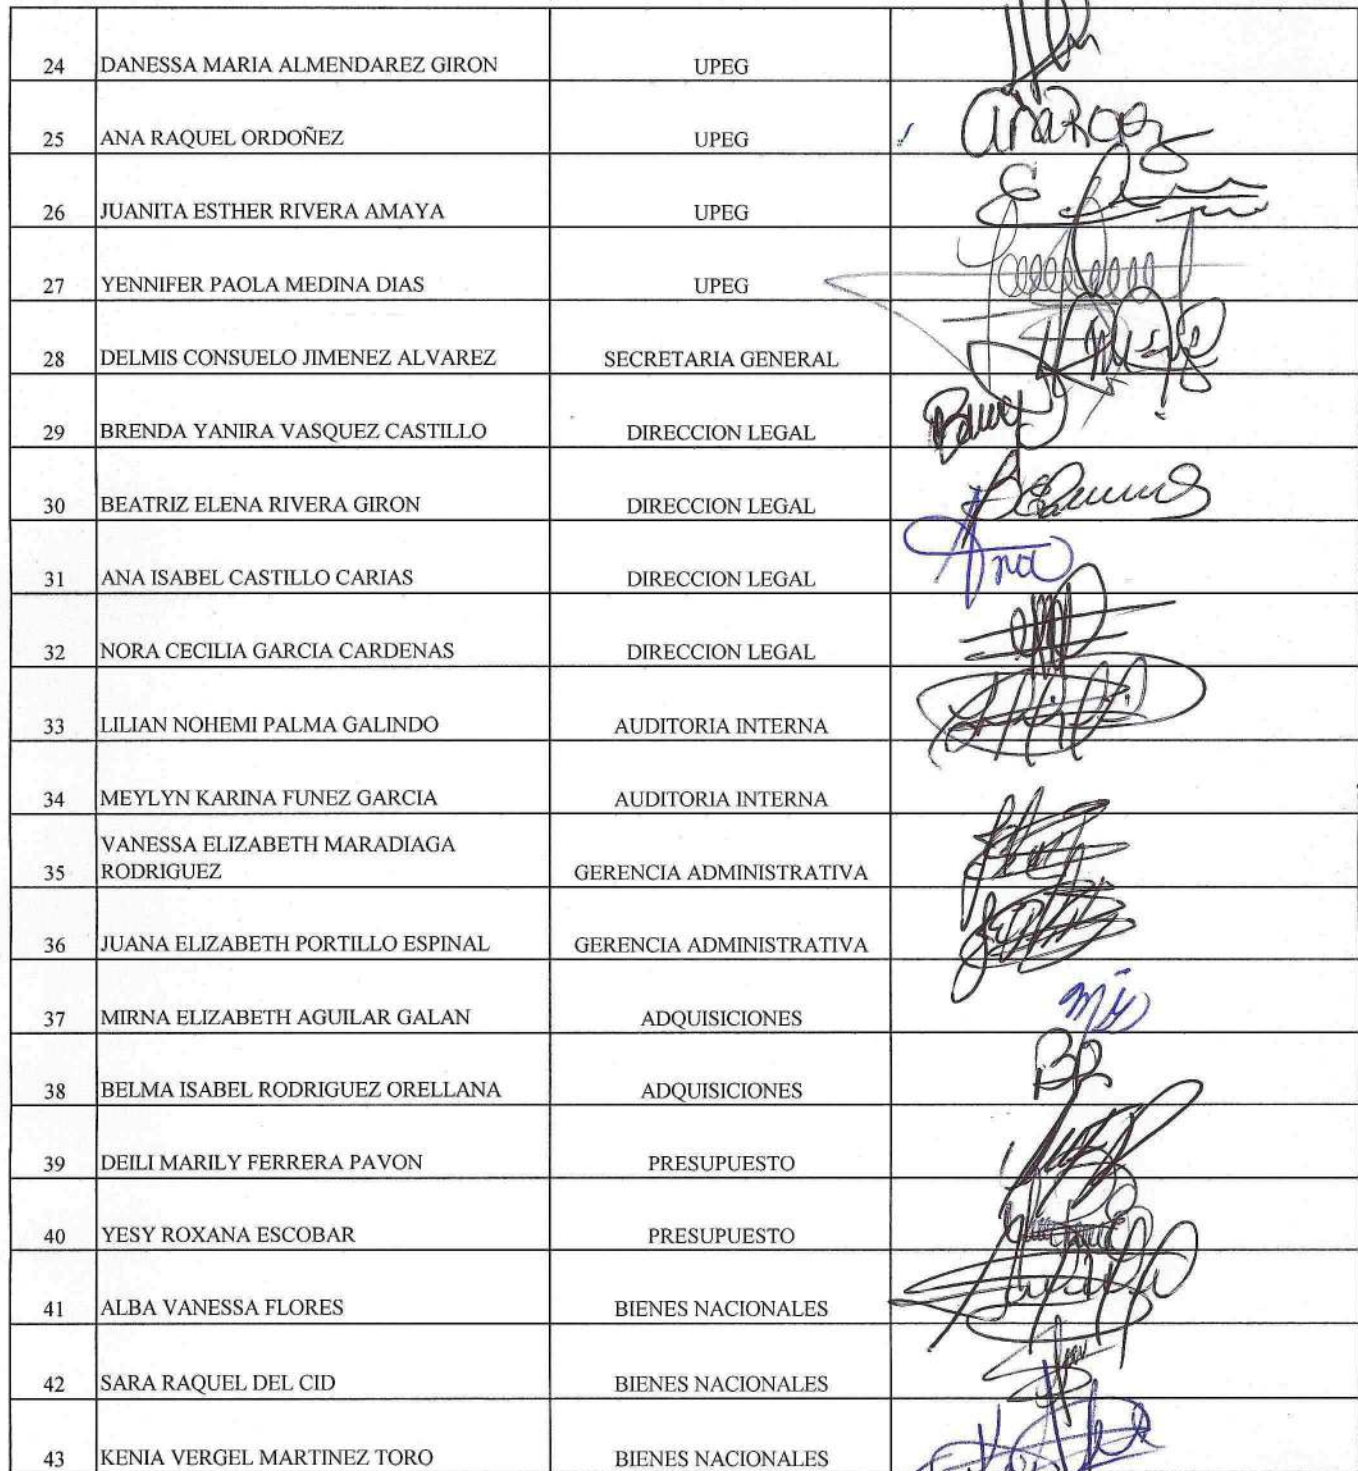 24 DANESSA MARIA ALMENDAREZ GIRON UPEG
25 ANA RAQUEL ORDOÑEZ UPEG
26 JUANITA ESTHER RIVERA AMAYA UPEG
27 YENNIFER PAOLA MEDINA DIAS UPEG
28 DELMIS CONSUELO JIMENEZ ALVAREZ SECRETARIA GENERAL
29 BRENDA YANIRA VASQUEZ CASTILLO DIRECCION LEGAL
30 BEATRIZ ELENA RIVERA GIRON DIRECCION LEGAL
31 ANA ISABEL CASTILLO CARIAS DIRECCION LEGAL Ana
32 NORA CECILIA GARCIA CARDENAS DIRECCION LEGAL
33 LILIAN NOHEMI PALMA GALINDO AUDITORIA INTERNA
34 MEYLYN KARINA FUNEZ GARCIA AUDITORIA INTERNA
VANESSA ELIZABETH MARADIAGA
35 RODRIGUEZ GERENCIA ADMINISTRATIVA
36 JUANA ELIZABETH PORTILLO ESPINAL GERENCIA ADMINISTRATIVA
37 MIRNA ELIZABETH AGUILAR GALAN ADQUISICIONES
38 BELMA ISABEL RODRIGUEZ ORELLANA ADQUISICIONES BR
39 DEILI MARILY FERRERA PAVON PRESUPUESTO
40 YESY ROXANA ESCOBAR PRESUPUESTO
41 ALBA VANESSA FLORES BIENES NACIONALES
42 SARA RAQUEL DEL CID BIENES NACIONALES
43 KENIA VERGEL MARTINEZ TORO BIENES NACIONALES